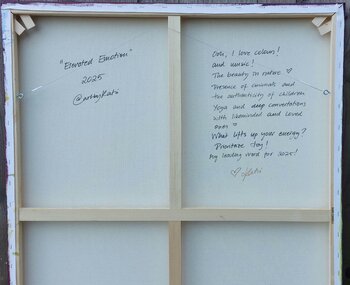 "Elevated Emotion"
2025
@artbyKatri
Ooh, I love colours!
and music!
The beauty in nature ♡
Presence of animals and
the authenticity of children
Yoga and deep conversations
with likeminded and loved
ones
What lifts up your energy?
Prioritize
My leading word for 2025!